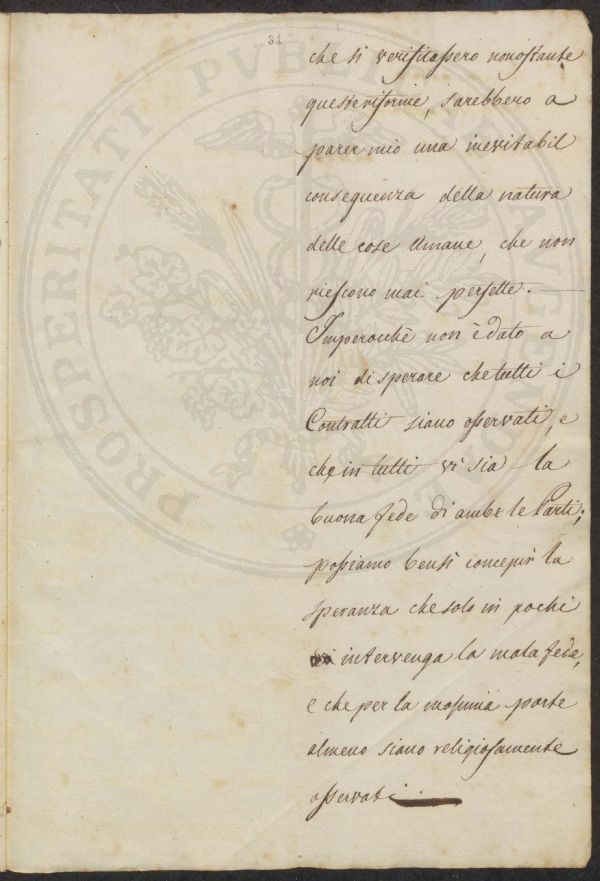 31
che si verificassero nonostante
queste riforme, sarebbero a
parer mio una inevitabil
conseguenza della natura
delle cose umane, che non
riescono mai perfette.
Imperocchè non è dato a
noi di sperare che tutti i
Contratti siano osservati, e
che in tutti vi sia la
buona fede di ambe le Parti;
possiamo bensì concepir la
speranza che solo in pochi
vi intervenga la mala fede,
e che per la massima parte
almeno siano religiosamente
osservati.
PROSPERITATI PUBLI